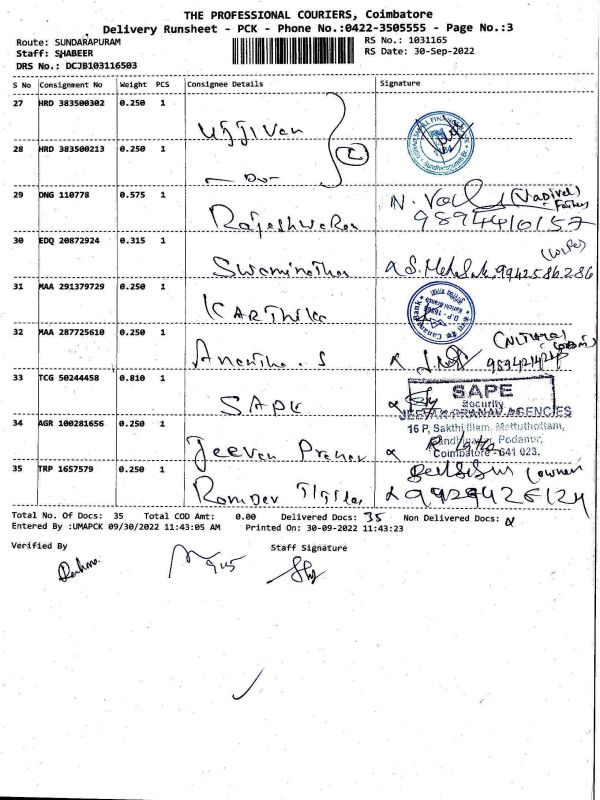 THE PROFESSIONAL COURIERS, Coimbatore
Delivery Runsheet - PCK - Phone No.:0422-3505555 - Page No.:3
Route: SUNDARAPURAM
RS No.: 1031165
Staff: SHABEER
RS Date: 30-Sep-2022
DRS No.: DCJB103116503
S No Consignment No Weight PCS Consignee Details Signature
27 HRD 383500302 0.250 1
Ujjivan
28 HRD 383500213 0.250 1
- Do -
29 DNG 110778 0.575 1
(Vadivel)
Rajeshwaran
9894410157
30 EDQ 20872924 0.315 1
(wife)
Swaminathan
9942586286
31 MAA 291379729 0.250 1
Canara Bank
KARTHIKA
32 MAA 287725610 0.250 1
Anantha. S
33 TCG 50244458 0.810 1
SAPE
Security
SAPE
JEEVAN PRANAV AGENCIES
34 AGR 100281656 0.250 1
16 P, Sakthi Illam, Mettuthottam,
Podanur,
Coimbatore - 641 023.
Jeevan Pranav
35 TRP 1657579 0.250 1
(owner
Ramdev
Total No. of Docs: 35 Total COD Amt: 0.00 Delivered Docs: 35 Non Delivered Docs:
Entered By :UMAPCK 09/30/2022 11:43:05 AM Printed On: 30-09-2022 11:43:23
Verified By
Staff Signature